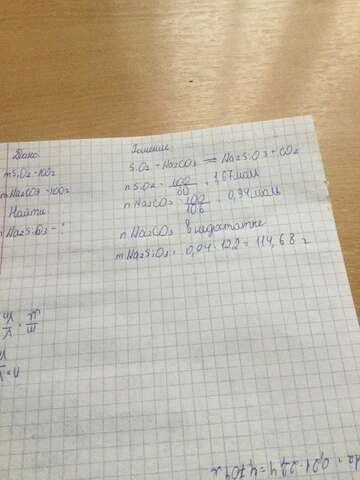 Дано
mSiO2 - 100г
mNa2CO3 - 100г
Найти
mNa2SiO3 - ?
Решение
SiO2 + Na2CO3 = Na2SiO3 + CO2
nSiO2 = 100/60 = 1,67 моль
nNa2CO3 = 100/106 = 0,94 моль
nNa2CO3 в недостатке
mNa2SiO3 = 0,94 · 122 = 114,68 г
m/M · V/Vm
n = V
= 0,21 · 22,4 = 4,704 л